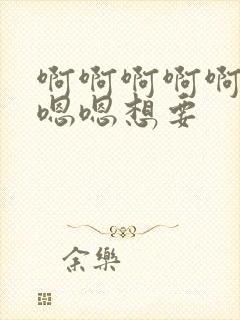 啊啊啊啊啊
嗯嗯想要
余樂